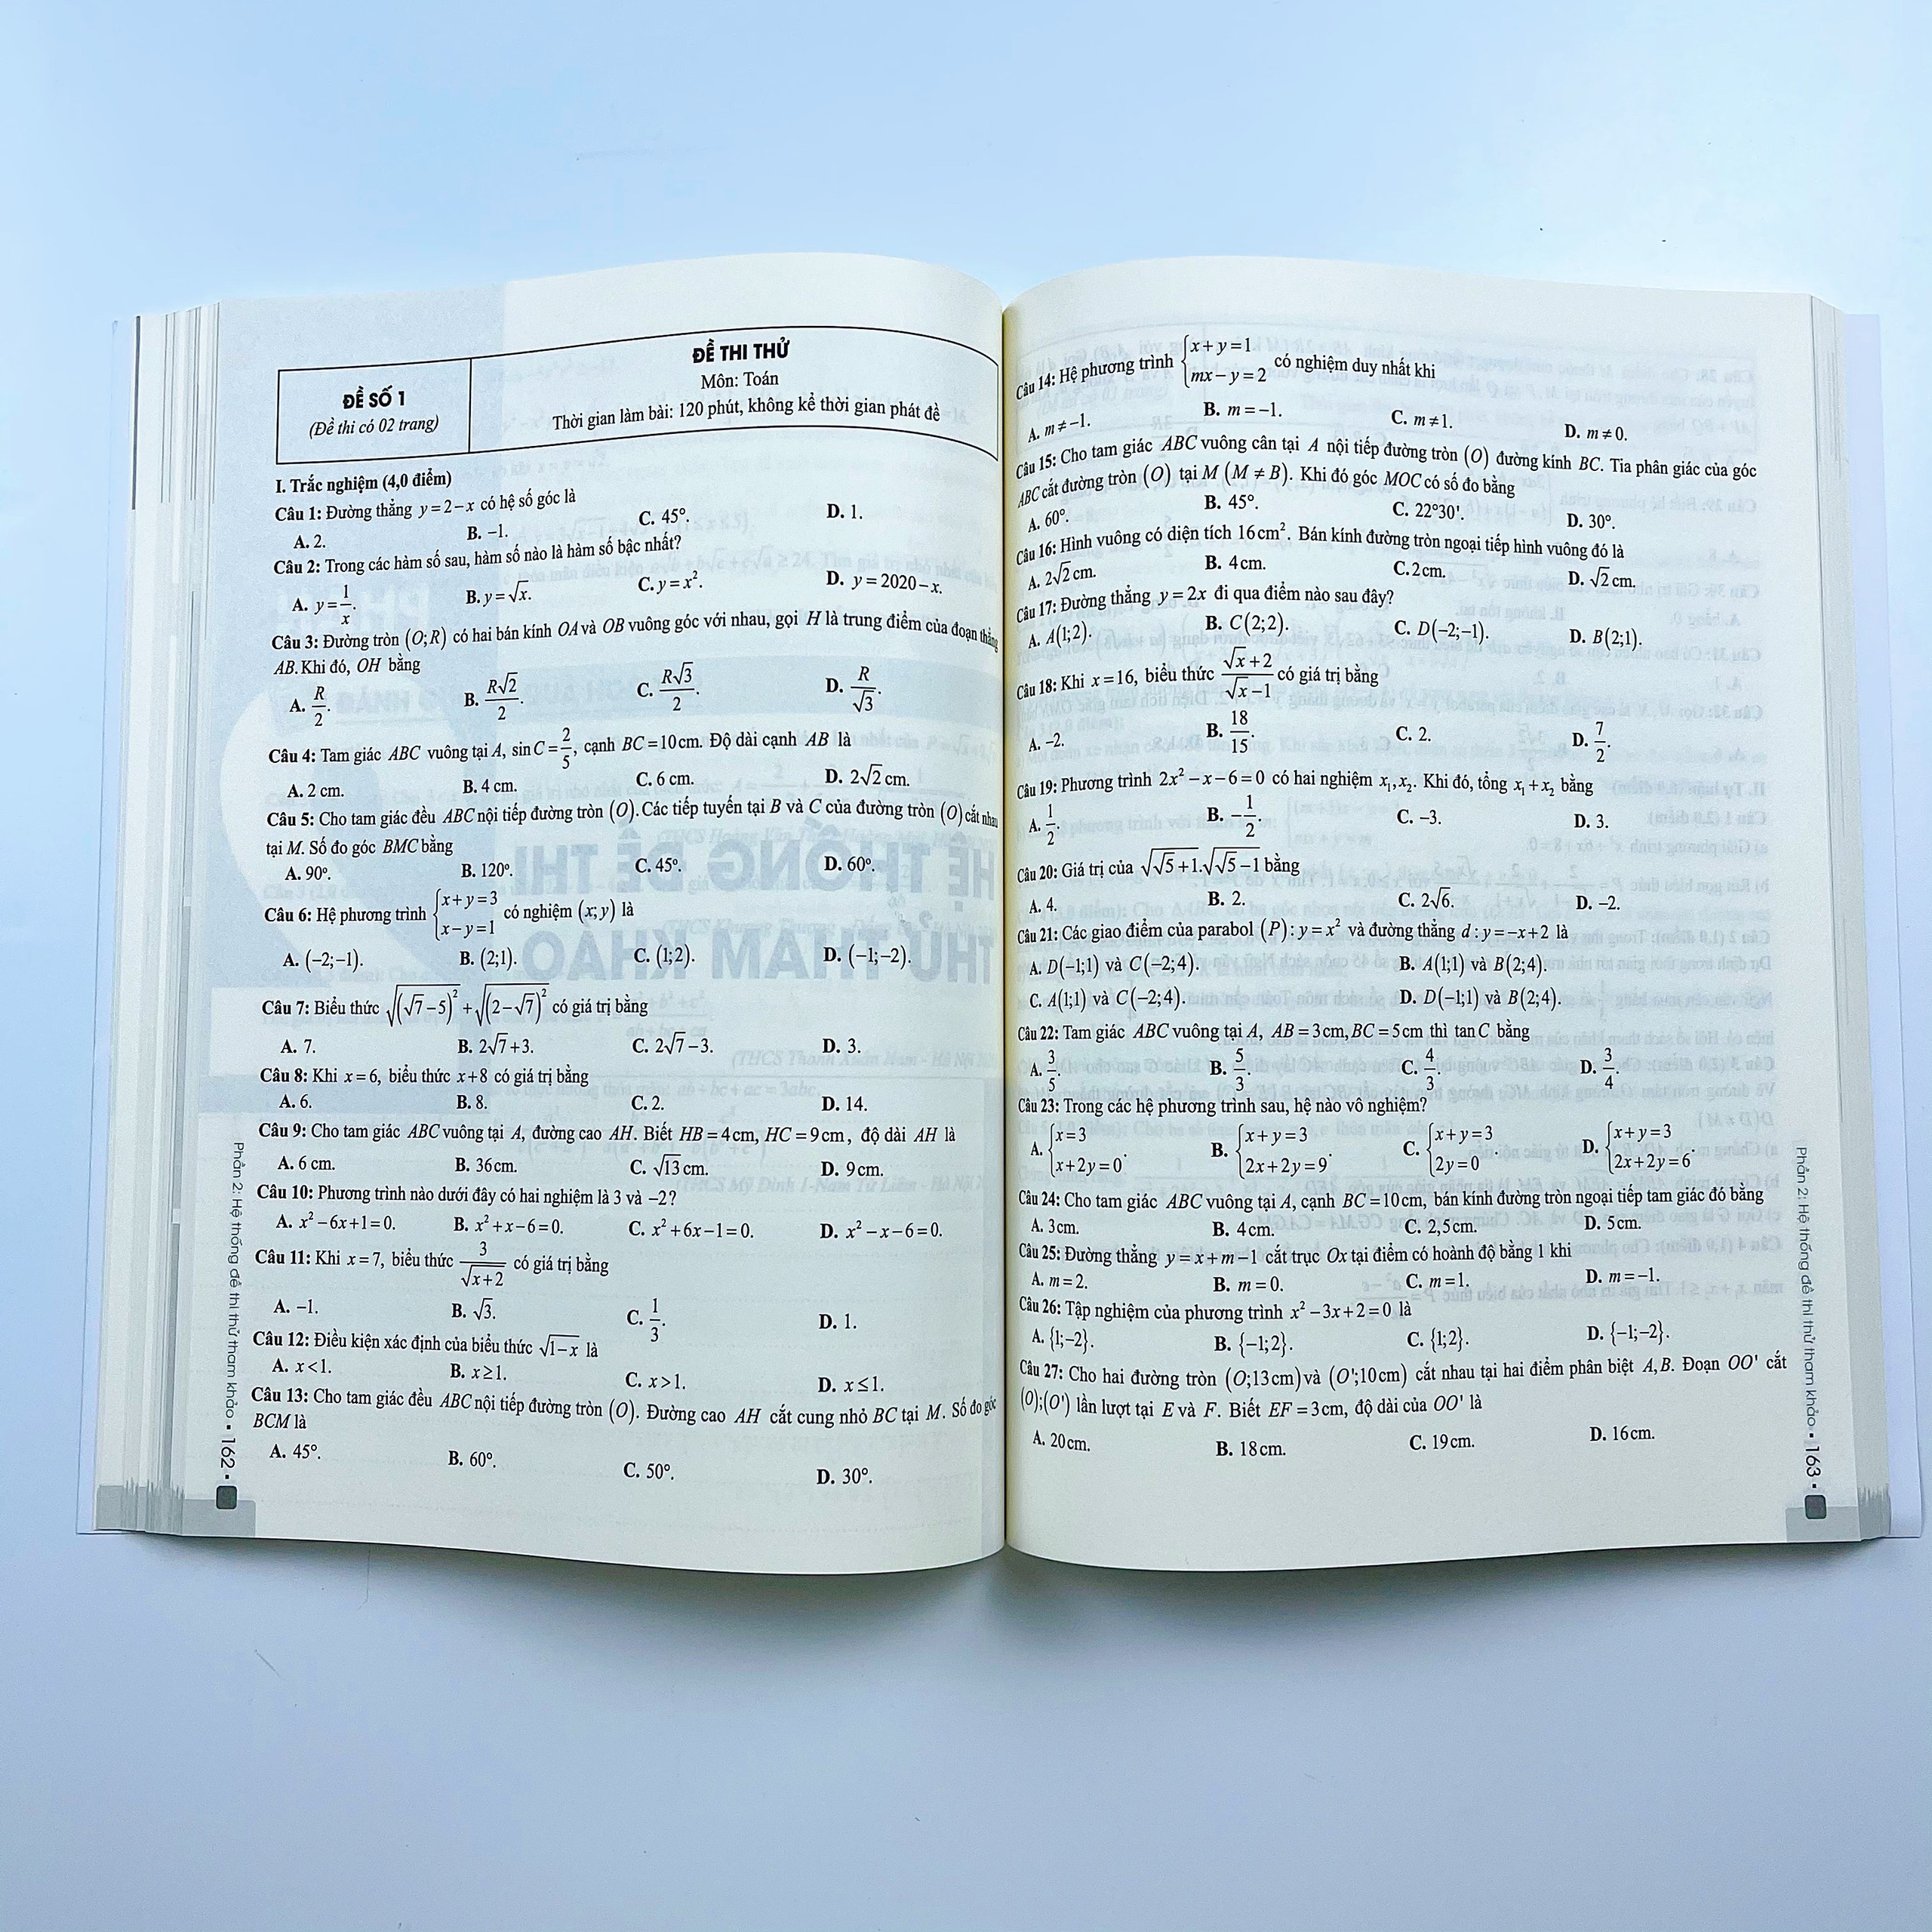 ĐỀ SỐ 1
(Đề thi có 02 trang)
ĐỀ THI THỬ
Môn: Toán
Thời gian làm bài: 120 phút, không kể thời gian phát đề
I. Trắc nghiệm (4,0 điểm)
Câu 1: Đường thẳng y = 2 − x có hệ số góc là
A. 2. B. −1. C. 45°. D. 1.
Câu 2: Trong các hàm số sau, hàm số nào là hàm số bậc nhất?
A. y = 1/x. B. y = √x. C. y = x². D. y = 2020 − x.
Câu 3: Đường tròn (O;R) có hai bán kính OA và OB vuông góc với nhau, gọi H là trung điểm của đoạn thẳng
AB. Khi đó, OH bằng
A. R/2. B. R√2/2. C. R√3/2. D. R/√3.
Câu 4: Tam giác ABC vuông tại A, sin C = 2/5, cạnh BC = 10 cm. Độ dài cạnh AB là
A. 2 cm. B. 4 cm. C. 6 cm. D. 2√2 cm.
Câu 5: Cho tam giác đều ABC nội tiếp đường tròn (O). Các tiếp tuyến tại B và C của đường tròn (O) cắt nhau
tại M. Số đo góc BMC bằng
A. 90°. B. 120°. C. 45°. D. 60°.
Câu 6: Hệ phương trình {x + y = 3; x − y = 1 có nghiệm (x;y) là
A. (−2;−1). B. (2;1). C. (1;2). D. (−1;−2).
Câu 7: Biểu thức √((√7 − 5)²) + √((2 − √7)²) có giá trị bằng
A. 7. B. 2√7 + 3. C. 2√7 − 3. D. 3.
Câu 8: Khi x = 6, biểu thức x + 8 có giá trị bằng
A. 6. B. 8. C. 2. D. 14.
Câu 9: Cho tam giác ABC vuông tại A, đường cao AH. Biết HB = 4 cm, HC = 9 cm, độ dài AH là
A. 6 cm. B. 36 cm. C. √13 cm. D. 9 cm.
Câu 10: Phương trình nào dưới đây có hai nghiệm là 3 và −2?
A. x² − 6x + 1 = 0. B. x² + x − 6 = 0. C. x² + 6x − 1 = 0. D. x² − x − 6 = 0.
Câu 11: Khi x = 7, biểu thức 3/√(x + 2) có giá trị bằng
A. −1. B. √3. C. 1/3. D. 1.
Câu 12: Điều kiện xác định của biểu thức √(1 − x) là
A. x < 1. B. x ≥ 1. C. x > 1. D. x ≤ 1.
Câu 13: Cho tam giác đều ABC nội tiếp đường tròn (O). Đường cao AH cắt cung nhỏ BC tại M. Số đo góc
BCM là
A. 45°. B. 60°. C. 50°. D. 30°.
Phần 2: Hệ thống đề thi thử tham khảo • 162 •
Câu 14: Hệ phương trình {x + y = 1; mx − y = 2 có nghiệm duy nhất khi
A. m ≠ −1. B. m = −1. C. m ≠ 1. D. m ≠ 0.
Câu 15: Cho tam giác ABC vuông cân tại A nội tiếp đường tròn (O) đường kính BC. Tia phân giác của góc
ABC cắt đường tròn (O) tại M (M ≠ B). Khi đó góc MOC có số đo bằng
A. 60°. B. 45°. C. 22°30'. D. 30°.
Câu 16: Hình vuông có diện tích 16 cm². Bán kính đường tròn ngoại tiếp hình vuông đó là
A. 2√2 cm. B. 4 cm. C. 2 cm. D. √2 cm.
Câu 17: Đường thẳng y = 2x đi qua điểm nào sau đây?
A. A(1;2). B. C(2;2). C. D(−2;−1). D. B(2;1).
Câu 18: Khi x = 16, biểu thức (√x + 2)/(√x − 1) có giá trị bằng
A. −2. B. 18/15. C. 2. D. 7/2.
Câu 19: Phương trình 2x² − x − 6 = 0 có hai nghiệm x₁, x₂. Khi đó, tổng x₁ + x₂ bằng
A. 1/2. B. −1/2. C. −3. D. 3.
Câu 20: Giá trị của √(√5 + 1).√(√5 − 1) bằng
A. 4. B. 2. C. 2√6. D. −2.
Câu 21: Các giao điểm của parabol (P): y = x² và đường thẳng d: y = −x + 2 là
A. D(−1;1) và C(−2;4). B. A(1;1) và B(2;4).
C. A(1;1) và C(−2;4). D. D(−1;1) và B(2;4).
Câu 22: Tam giác ABC vuông tại A, AB = 3 cm, BC = 5 cm thì tan C bằng
A. 3/5. B. 5/3. C. 4/3. D. 3/4.
Câu 23: Trong các hệ phương trình sau, hệ nào vô nghiệm?
A. {x = 3; x + 2y = 0. B. {x + y = 3; 2x + 2y = 9. C. {x + y = 3; 2y = 0. D. {x + y = 3; 2x + 2y = 6.
Câu 24: Cho tam giác ABC vuông tại A, cạnh BC = 10 cm, bán kính đường tròn ngoại tiếp tam giác đó bằng
A. 3 cm. B. 4 cm. C. 2,5 cm. D. 5 cm.
Câu 25: Đường thẳng y = x + m − 1 cắt trục Ox tại điểm có hoành độ bằng 1 khi
A. m = 2. B. m = 0. C. m = 1. D. m = −1.
Câu 26: Tập nghiệm của phương trình x² − 3x + 2 = 0 là
A. {1;−2}. B. {−1;2}. C. {1;2}. D. {−1;−2}.
Câu 27: Cho hai đường tròn (O;13 cm) và (O';10 cm) cắt nhau tại hai điểm phân biệt A, B. Đoạn OO' cắt
(O);(O') lần lượt tại E và F. Biết EF = 3 cm, độ dài của OO' là
A. 20 cm. B. 18 cm. C. 19 cm. D. 16 cm.
Phần 2: Hệ thống đề thi thử tham khảo • 163 •